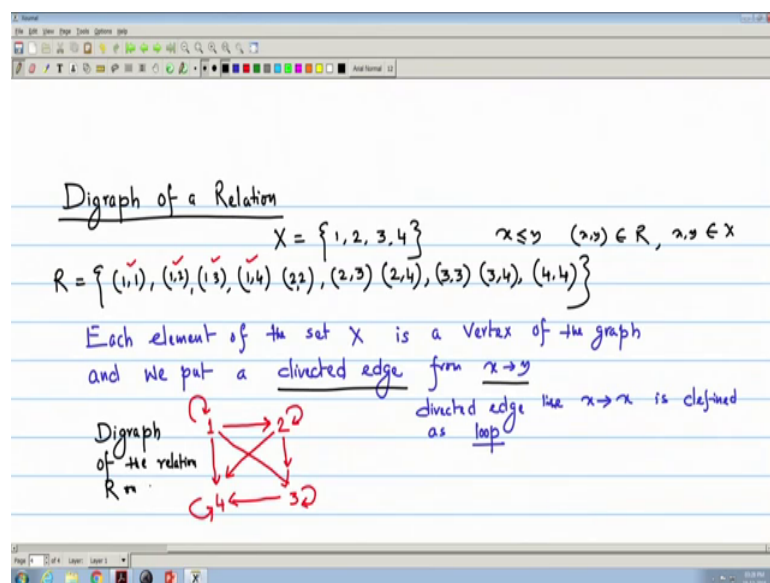 Journal
File Edit View Page Tools Options Help
Arial Normal 12
Digraph of a Relation
X = {1, 2, 3, 4} x ≤ y (x,y) ∈ R, x,y ∈ X
R = {(1,1), (1,2), (1 3), (1,4) (2,2), (2,3) (2,4), (3,3) (3,4), (4,4)}
Each element of the set X is a vertex of the graph
and we put a directed edge from x → y
directed edge like x → x is defined
as loop
Digraph
of the relation
R on
1 2
4 3
Page 4 of 4 Layer: Layer 1